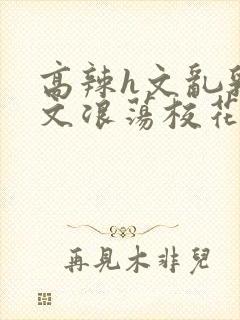 高辣h文乱乳
文浪荡校花
再見木非兒